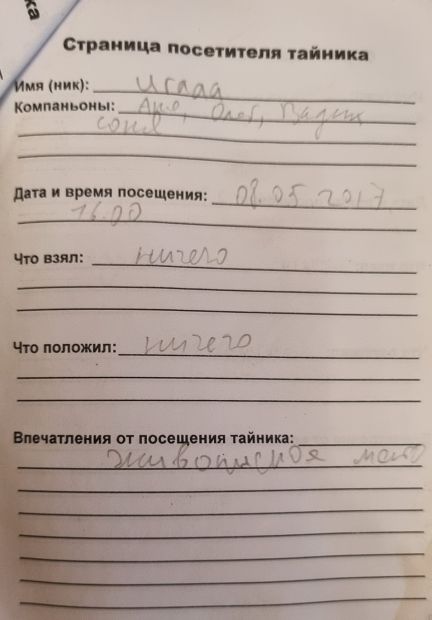 ка
Страница посетителя тайника
Имя (ник): игала
Компаньоны: Аня, Олег, Вадик
соня
Дата и время посещения: 08.05.2017
16.00
Что взял: ничего
Что положил: ничего
Впечатления от посещения тайника:
живописное место